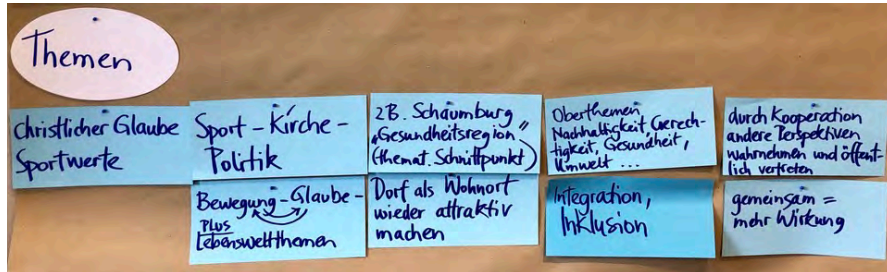 Themen
christlicher Glaube
Sportwerte
Sport – Kirche –
Politik
Bewegung – Glaube –
PLUS
Lebensweltthemen
z.B. Schaumburg
„Gesundheitsregion"
(themat. Schnittpunkt)
Dorf als Wohnort
wieder attraktiv
machen
Oberthemen
Nachhaltigkeit, Gerech-
tigkeit, Gesundheit,
Umwelt ...
Integration,
Inklusion
durch Kooperation
andere Perspektiven
wahrnehmen und öffent-
lich vertreten
gemeinsam =
mehr Wirkung